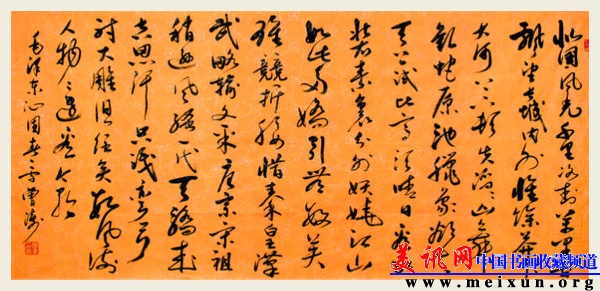 北国风光千里冰封万里雪
飘望长城内外惟馀莽莽
大河上下顿失滔滔山舞
银蛇原驰蜡象欲与
天公试比高须晴日看
红装素裹分外妖娆江山
如此多娇引无数英
雄竞折腰惜秦皇汉
武略输文采唐宗宋祖
稍逊风骚一代天骄成
吉思汗只识弯弓
射大雕俱往矣数风流
人物还看今朝
毛泽东沁园春雪曹
美讯网中国书画收藏频道
www.meixun.org